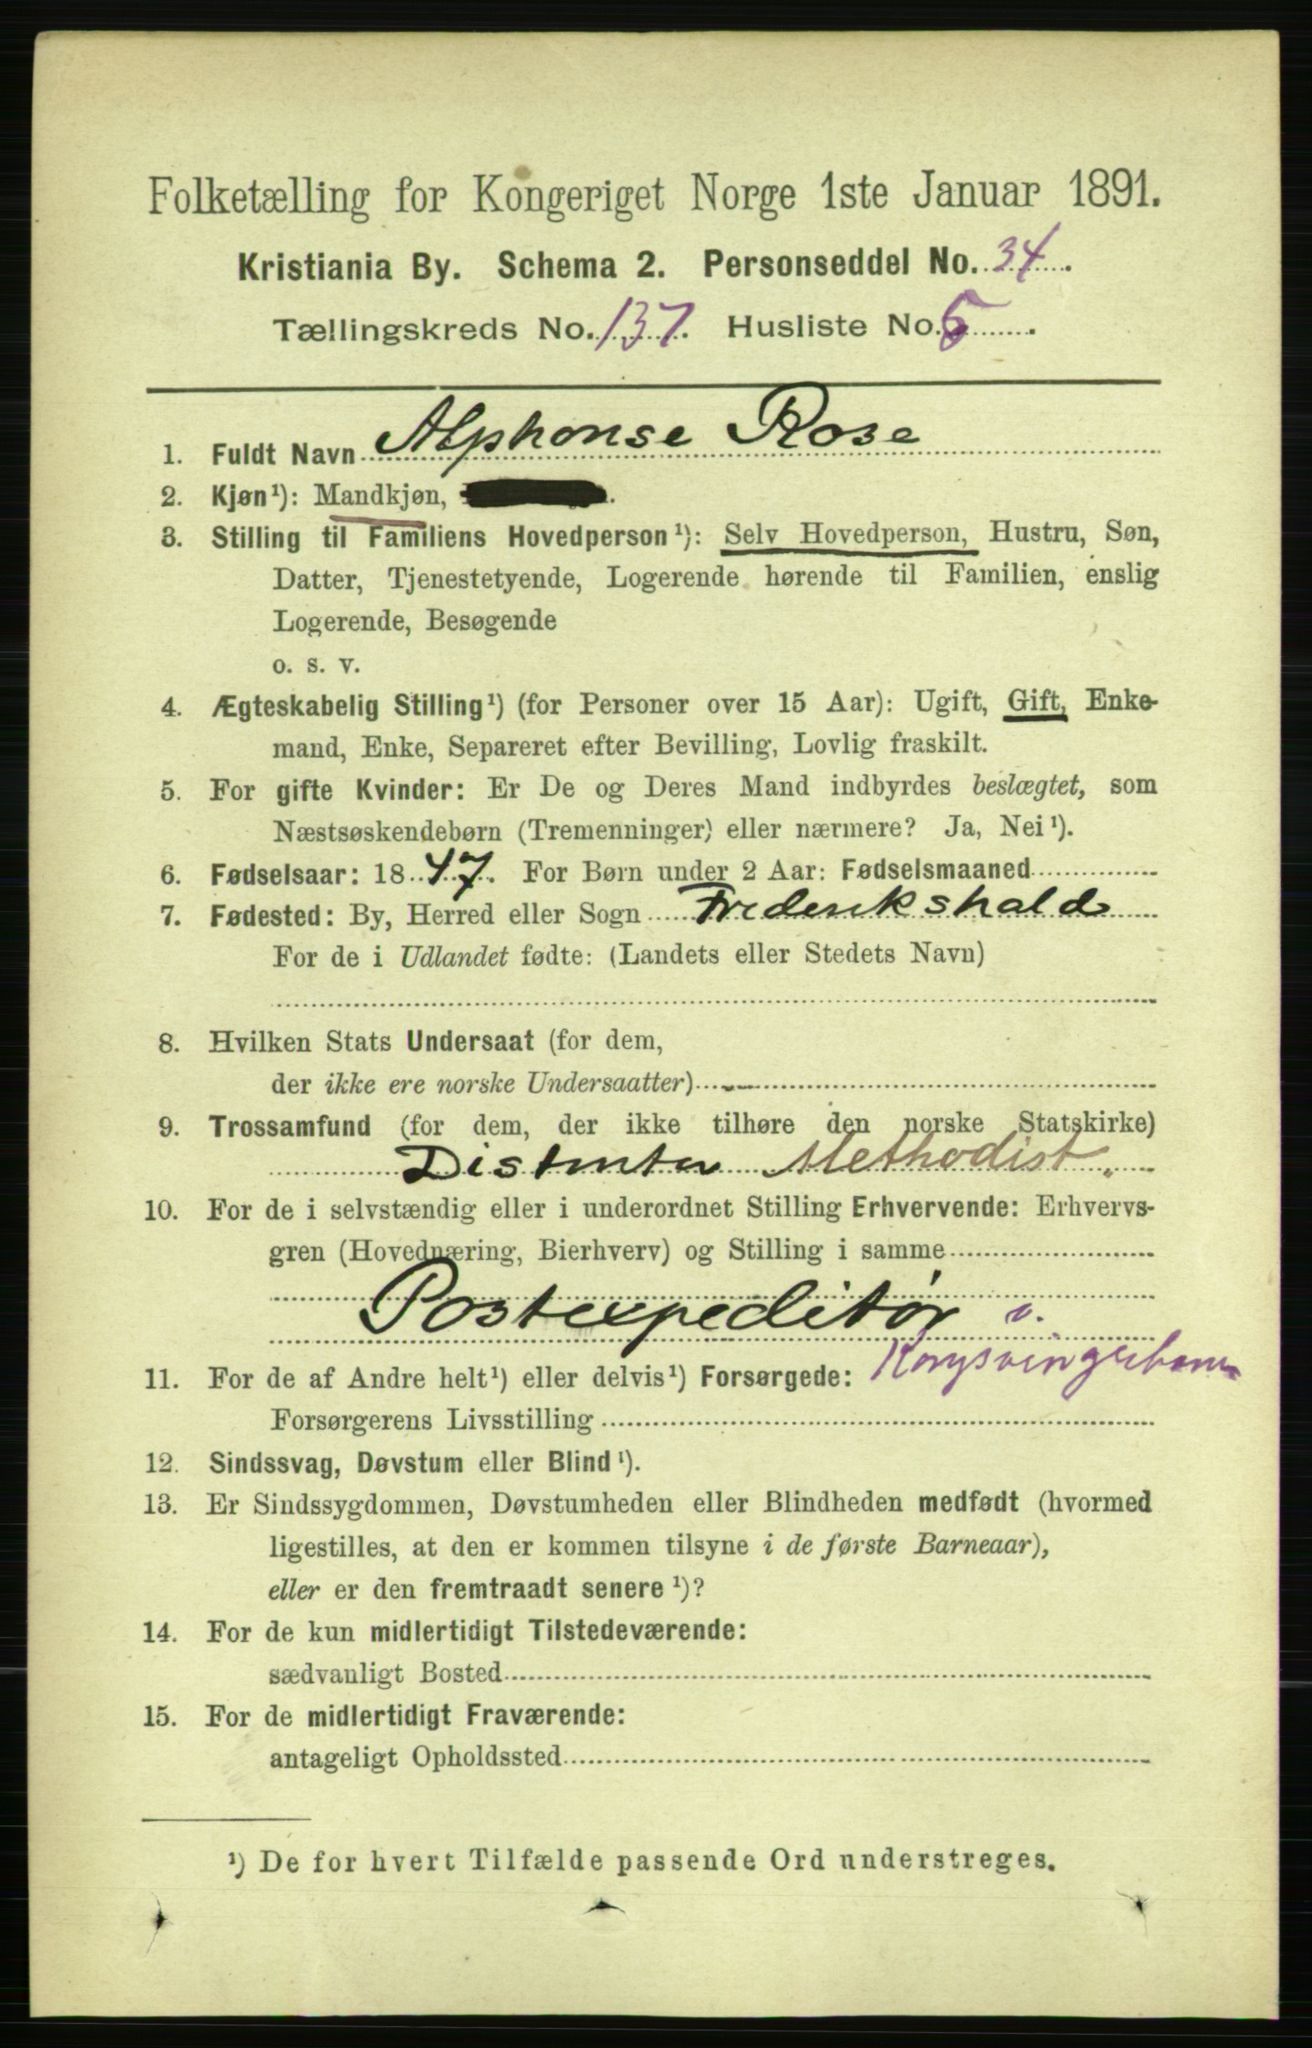 Folketælling for Kongeriget Norge 1ste Januar 1891.
Kristiania By. Schema 2. Personseddel No. 34.
Tællingskreds No. 137. Husliste No. 5.
1. Fuldt Navn Alphonse Rose
2. Kjøn¹): Mandkjøn, .
3. Stilling til Familiens Hovedperson¹): Selv Hovedperson, Hustru, Søn,
Datter, Tjenestetyende, Logerende hørende til Familien, enslig
Logerende, Besøgende
o. s. v.
4. Ægteskabelig Stilling¹) (for Personer over 15 Aar): Ugift, Gift, Enke-
mand, Enke, Separeret efter Bevilling, Lovlig fraskilt.
5. For gifte Kvinder: Er De og Deres Mand indbyrdes beslægtet, som
Næstsøskendebørn (Tremenninger) eller nærmere? Ja, Nei¹).
6. Fødselsaar: 1847. For Børn under 2 Aar: Fødselsmaaned
7. Fødested: By, Herred eller Sogn Frederikshald
For de i Udlandet fødte: (Landets eller Stedets Navn)
8. Hvilken Stats Undersaat (for dem,
der ikke ere norske Undersaatter)
9. Trossamfund (for dem, der ikke tilhøre den norske Statskirke)
Distenter Methodist.
10. For de i selvstændig eller i underordnet Stilling Erhvervende: Erhvervs-
gren (Hovednæring, Bierhverv) og Stilling i samme
Postexpeditør v.
Kongsvingerbanen
11. For de af Andre helt¹) eller delvis¹) Forsørgede:
Forsørgerens Livsstilling
12. Sindssvag, Døvstum eller Blind¹).
13. Er Sindssygdommen, Døvstumheden eller Blindheden medfødt (hvormed
ligestilles, at den er kommen tilsyne i de første Barneaar),
eller er den fremtraadt senere¹)?
14. For de kun midlertidigt Tilstedeværende:
sædvanligt Bosted
15. For de midlertidigt Fraværende:
antageligt Opholdssted
¹) De for hvert Tilfælde passende Ord understreges.